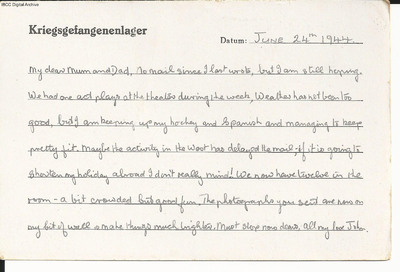 IBCC Digital Archive
Kriegsgefangenenlager
Datum: JUNE 24th 1944.
My dear Mum and Dad, No mail since I last wrote, but I am still hoping.
We had one act plays at the theatre during the week, Weather has not been too
good, but I am keeping up my hockey and Spanish and managing to keep
pretty fit. Maybe the activity in the West has delayed the mail - if it is going to
shorten my holiday abroad I don't really mind! We now have twelve in the
room - a bit crowded but good fun. The photographs you sent are now on
my bit of wall & make things much brighter. Must stop now dears. All my love John.